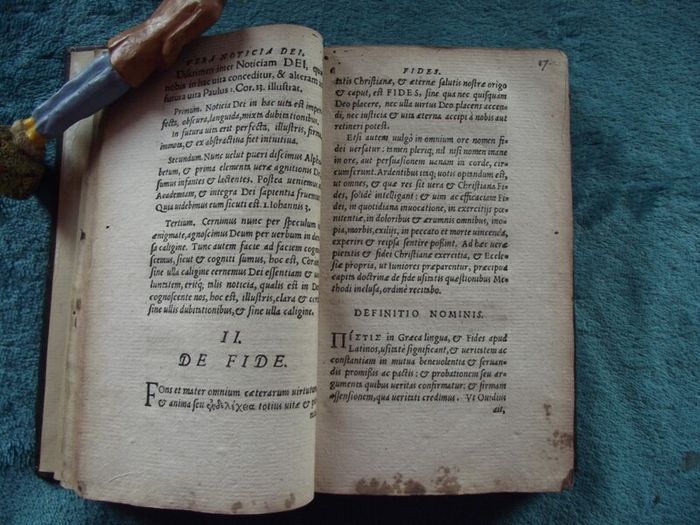 VERA NOTICIA DEI.
Discrimen inter Noticiam DEI, quæ
nobis in hac uita conceditur, & alteram
futura uita Paulus 1. Cor. 13. illustrat.
Primum. Noticia Dei in hac uita est imper
fecta, obscura, languida, mixta dubitationibus.
In futura uita erit perfecta, illustris, firma,
immota, & ex abstractiua fiet intuitiua.
Secundum. Nunc uelut pueri discimus Alpha
betum, & prima elementa uere agnitionis Dei
sumus infantes & lactentes. Postea ueniemus
Academiam, & integra Dei sapientia fruemur.
Quia uidebimus eum sicuti est. 1. Iohannis 3.
Tertium. Cernimus nunc per speculum
ænigmate, agnoscimus Deum per uerbum in den
sa caligine. Tunc autem facie ad faciem cogno
scemus, sicut & cogniti sumus, hoc est, Coram
sine ulla caligine cernemus Dei essentiam & uo
luntatem, eritq; talis noticia, qualis est in Deo
cognoscente nos, hoc est, illustris, clara & certa
sine ullis dubitationibus, & sine ulla caligine.
II.
DE FIDE.
Fons et mater omnium cæterarum uirtutum
& anima seu ἐνδελέχεια totius uitæ &
FIDES. 17.
tatis Christianæ, & æternæ salutis nostræ origo
& caput, est FIDES, sine qua nec quisquam
Deo placere, nec ulla uirtus Deo placens accen
di, nec iusticia & uita æterna accipi à nobis aut
retineri potest.
Etsi autem uulgò in omnium ore nomen fi
dei uersatur: tamen pleriq; nil nisi nomen inane
in ore, aut persuasionem uanam in corde, circum
ferunt. Ardentibus itaq; uotis optandum est,
ut omnes, & quæ res sit uera & Christiana Fi
des, solidè intelligant: & uim ac efficaciam Fi
dei, in quotidiana inuocatione, in exercitijs pœ
nitentiæ, in doloribus & ærumnis omnibus, inopia,
morbis, exilijs, in peccato et morte uincenda,
experiri & reipsa sentire possint. Ad hæc ueræ
pietatis & fidei Christianæ exercitia, & Eccle
siæ propria, ut Iuniores præparentur, præcipua
capita doctrinæ de fide usitatis quæstionibus Me
thodi inclusa, ordine recitabo.
DEFINITIO NOMINIS.
ΠΙΣΤΙΣ in Græca lingua, & Fides apud
Latinos, usitatè significant, & ueritatem ac
constantiam in mutua beneuolentia & seruan
dis promissis ac pactis: & probationem seu ar
gumenta quibus ueritas confirmatur: & firmam
assensionem, qua ueritati credimus. Vt Ouidius
ait,